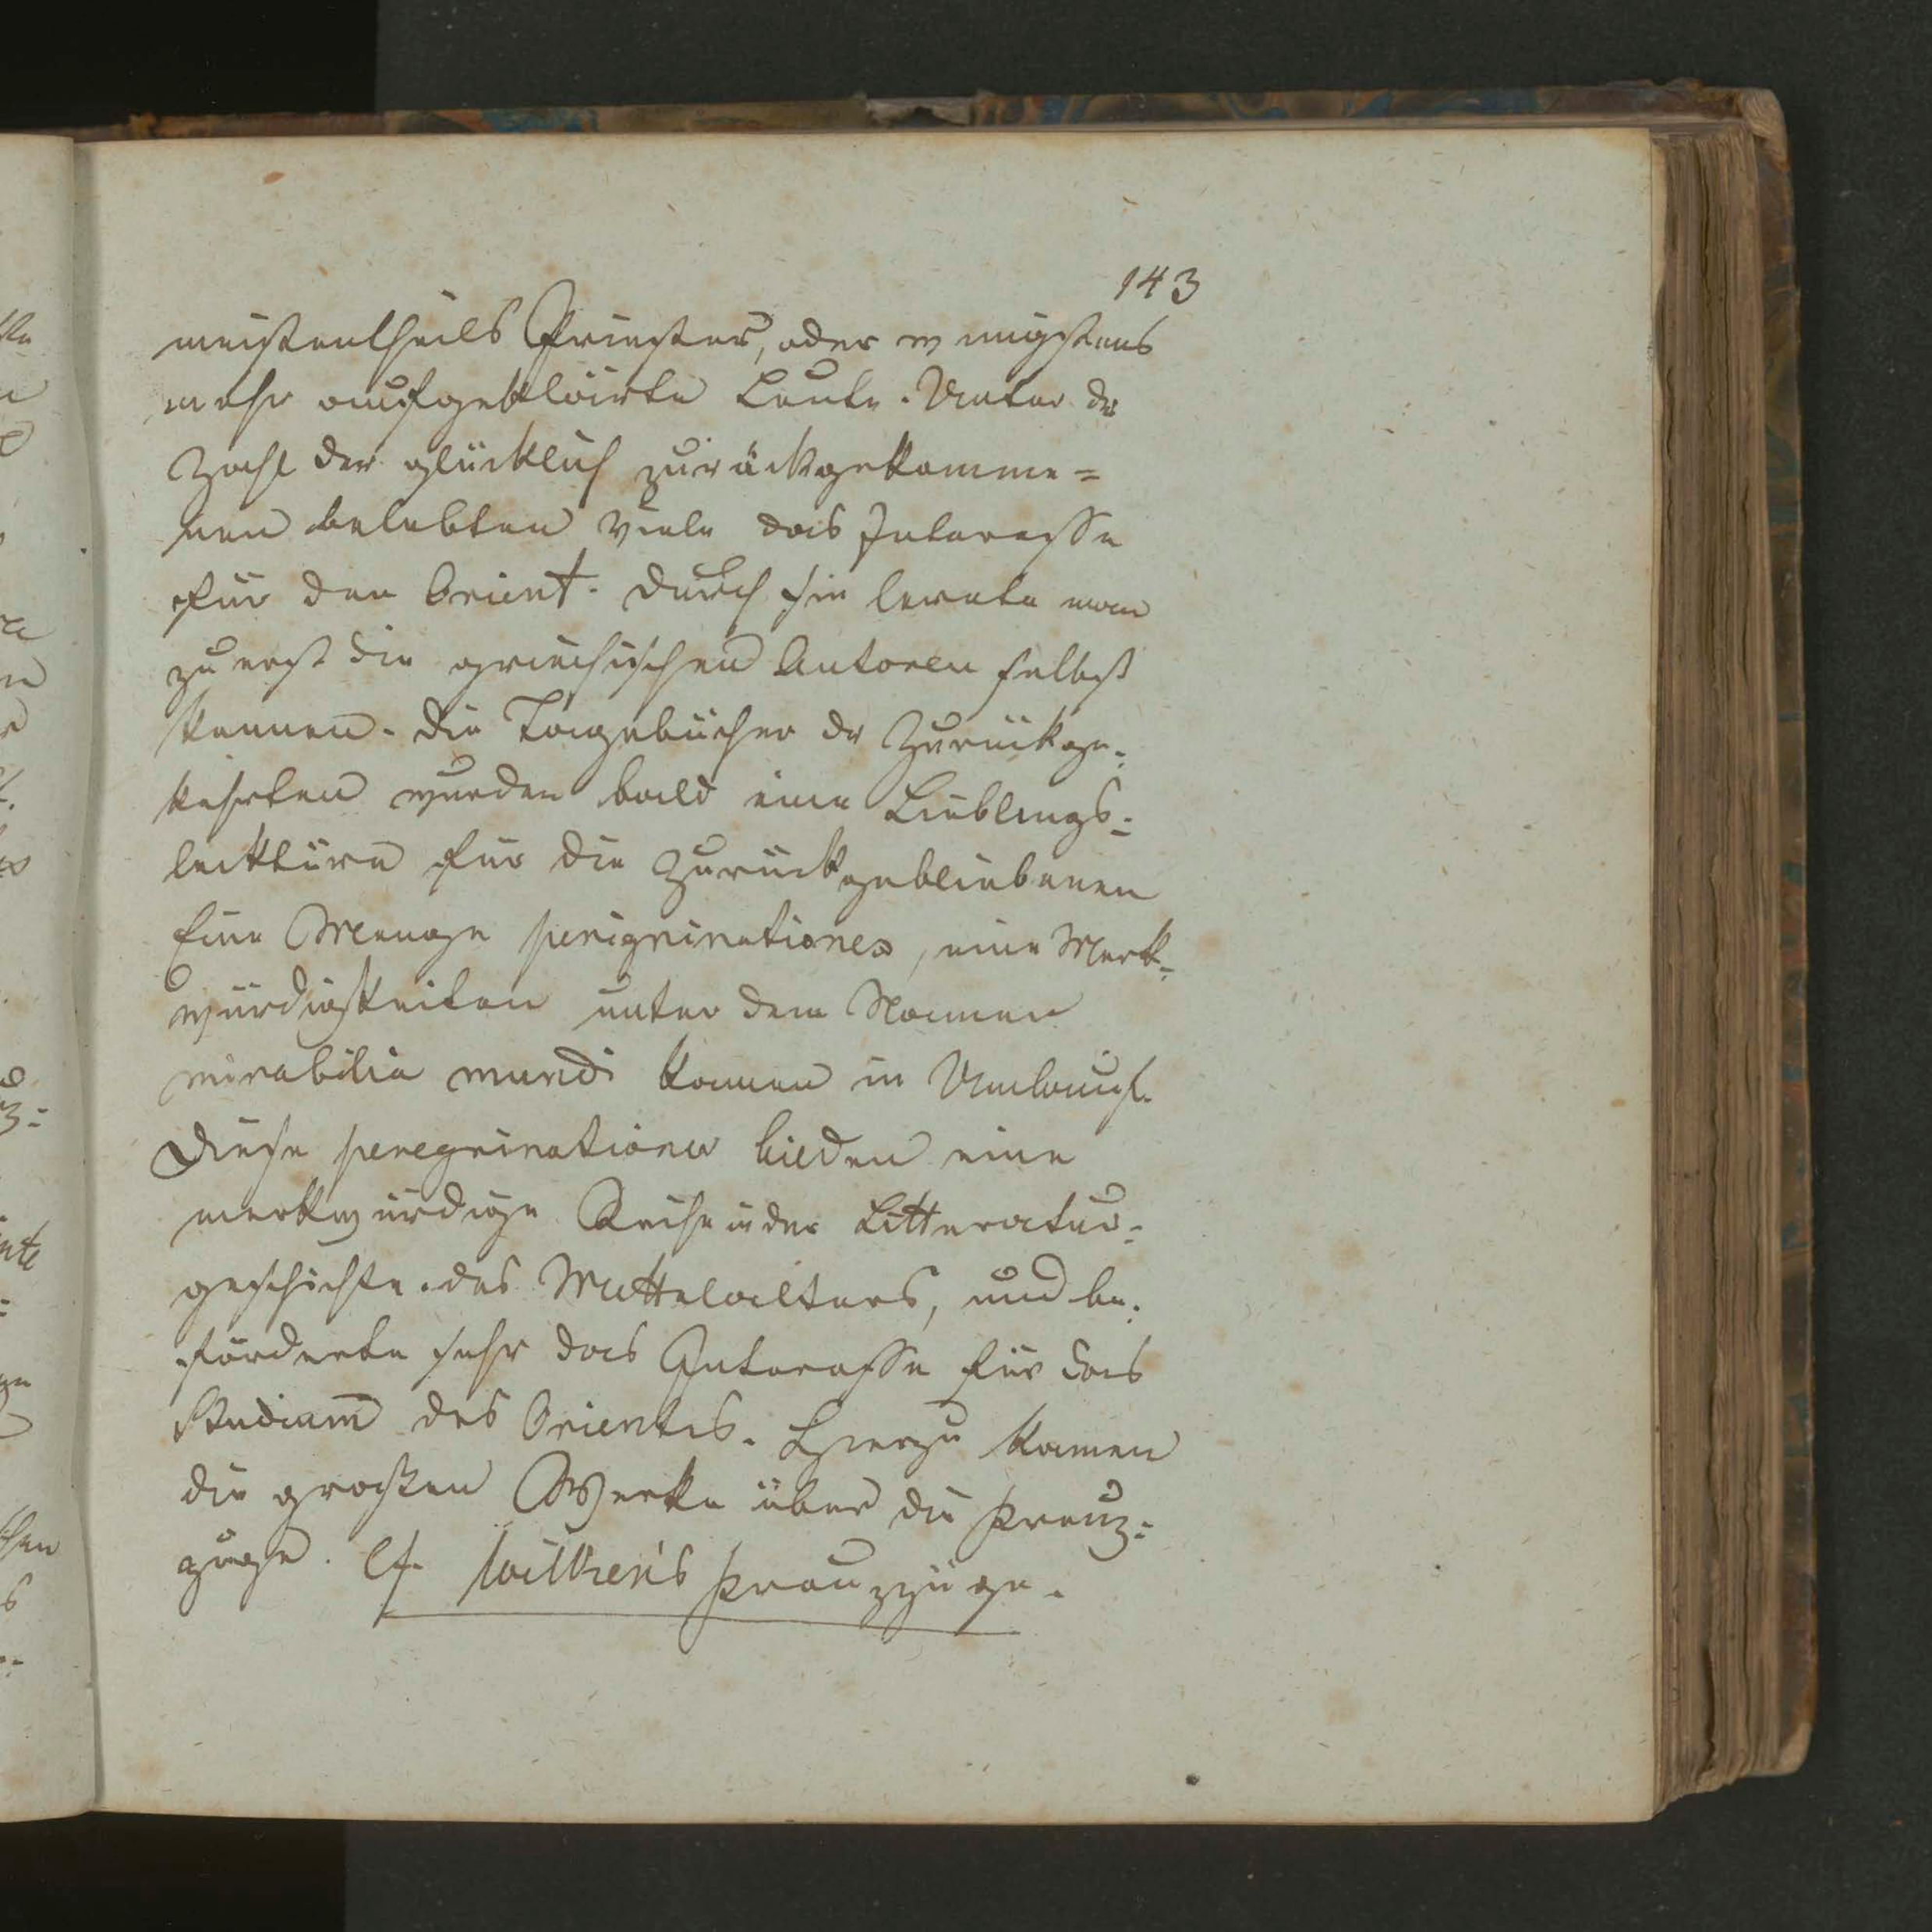 143
meistentheils Priester, oder wenigstens
mehr aufgeklärte Leute. Unter der
Zahl der glücklich zurückgekomme=
nen belebten viele das Interesse
für den Orient. Durch sie lernte man
zuerst die griechischen Autoren selbst
kennen. Die Tagebücher der Zurückge=
kehrten wurden bald eine Lieblings=
lecktüre für die Zurückgebliebenen
Eine Menge perigrinationes, eine Merk=
würdigkeiten unter dem Namen
mirabilia mundi kamen in Umlauf.
Diese peregrinationes bilden eine
merkwürdige Reihe in der Litteratur=
geschichte des Mittelalters, und be=
förderte sehr das Interesse für das
Studium des Orientes. Hierzu kamen
die großen Werke über die Kreuz=
züge. Cf. Wilken's Kreuzzüge.